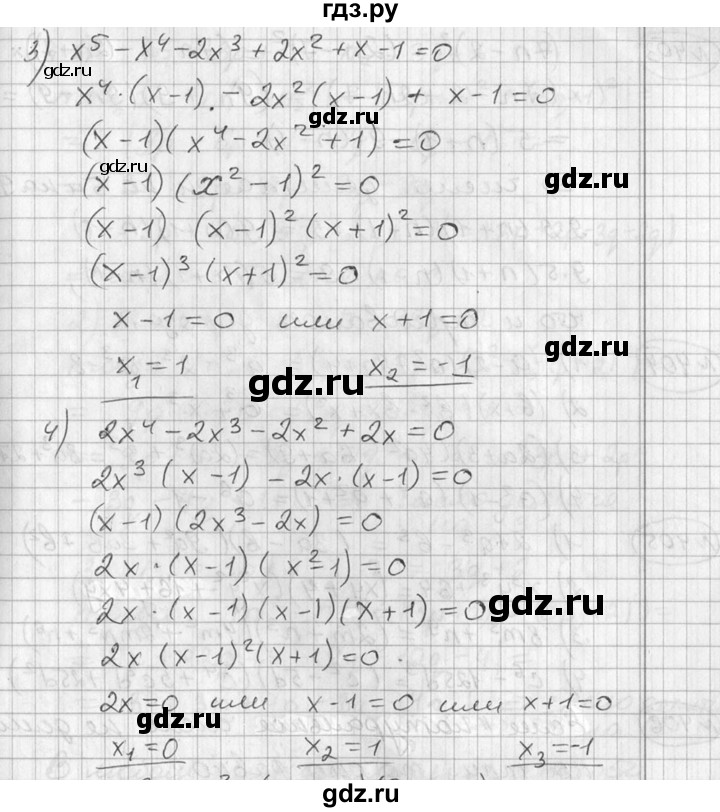 гдз.ру
3) x⁵ - x⁴ - 2x³ + 2x² + x - 1 = 0
gdz.ru
x⁴·(x-1) - 2x²(x-1) + x-1 = 0
gdz.ru
(x-1)(x⁴ - 2x² + 1) = 0
gdz.ru
(x-1)(x² - 1)² = 0
gdz.ru
(x-1) (x-1)² (x+1)² = 0
(x-1)³ (x+1)² = 0
x-1 = 0 или x+1 = 0
gdz.ru
x₁ = 1 x₂ = -1
gdz.ru
4) 2x⁴ - 2x³ - 2x² + 2x = 0
2x³ (x-1) - 2x·(x-1) = 0
(x-1)(2x³ - 2x) = 0
gdz.ru
2x·(x-1)(x²-1) = 0
2x·(x-1)(x-1)(x+1) = 0
gdz.ru
2x (x-1)²(x+1) = 0
2x = 0 или x-1 = 0 или x+1 = 0
gdz.ru
x₁ = 0 x₂ = 1 x₃ = -1
gdz.ru